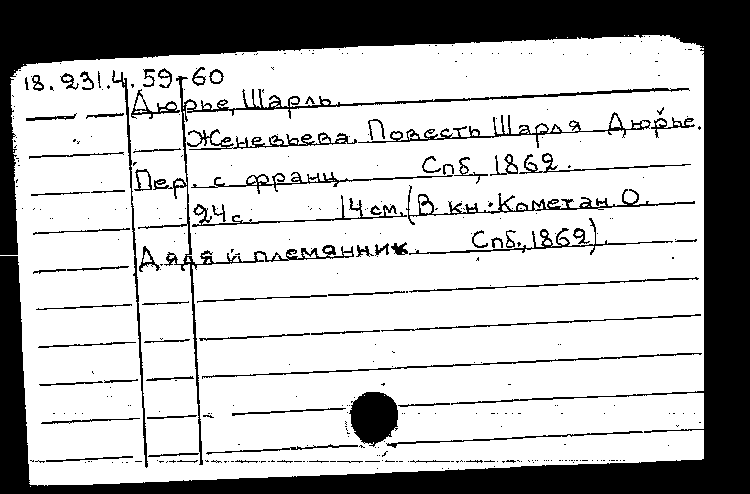 18.231.4.59-60
Дюрье, Шарль.
Женевьева. Повесть Шарля Дюрье.
Пер. с франц. Спб, 1862.
24с. 14 см. (В кн.: Кометан О.
Дядя и племянник. Спб., 1862).